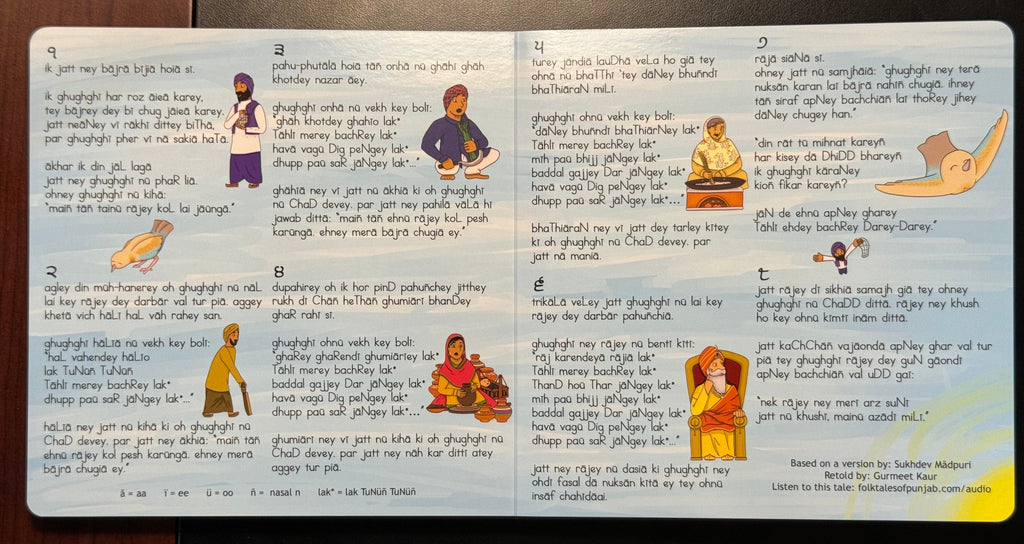 ੧
ik jatt ney bājrā bījiā hoiā sī.
ik ghughghī har roz āieā karey,
tey bājrey dey bī chug jāieā karey.
jatt neāNey vī rākhī dittey biThā,
par ghughghī pher vī nā sakiā haTā.
ākhar ik din jāL lagā
jatt ney ghughghī nū phaR liā.
ohney ghughghī nū kihā:
"maiñ tāñ tainū rājey koL lai jāūngā."
੨
agley din mūh-hanerey oh ghughghī nū nāL
lai key rājey dey darbār val tur piā. aggey
khetā vich hāLī haL vāh rahey san.
ghughghī hāLīā nū vekh key bolī:
"haL vahendey hāLīo
lak TuNūñ TuNūñ
Tāhlī merey bachRey lak*
dhupp paū saR jāNgey lak*..."
hāLīā ney jatt nū kihā ki oh ghughghī nū
ChaD devey. par jatt ney ākhiā: "maiñ tāñ
ehnū rājey koL pesh karūngā. ehney merā
bājrā chugiā ey."
੩
pahu-phutālā hoiā tāñ onhā nū ghāhī ghāh
khotdey nazar āey.
ghughghī onhā nū vekh key bolī:
"ghāh khotdey ghahīo lak*
Tāhlī merey bachRey lak*
havā vagū Dig peNgey lak*
dhupp paū saR jāNgey lak*..."
ghāhīā ney vī jatt nū ākhiā ki oh ghughghī
nū ChaD devey. par jatt ney pahilā vāLā hī
jawab dittā: "maiñ tāñ ehnū rājey koL pesh
karūngā. ehney merā bājrā chugiā ey."
੪
dupahirey oh ik hor pinD pahuñchey jitthey
rukh dī Chāñ heThāñ ghumiārī bhanDey
ghaR rahī sī.
ghughghī ohnū vekh key bolī:
"ghaRey ghaRendī ghumiārīey lak*
Tāhlī merey bachRey lak*
baddal gajjey Dar jāNgey lak*
havā vagū Dig peNgey lak*
dhupp paū saR jāNgey lak*..."
ghumiārī ney vī jatt nū kihā ki oh ghughghī nū
ChaD devey. par jatt ney nāh kar dittī atey
aggey tur piā.
ā = aa ī = ee ū = oo ñ = nasal n lak* = lak TuNūñ TuNūñ
੫
turey jāndiā lauDhā veLa ho giā tey
ohnā nū bhaTThī 'tey dāNey bhunñdī
bhaThiāraN miLī.
ghughghī ohnū vekh key bolī:
"dāNey bhunñdī bhaThiārNey lak*
Tāhlī merey bachRey lak*
mīh paū bhijj jāNgey lak*
baddal gajjey Dar jāNgey lak*
havā vagū Dig peNgey lak*
dhupp paū saR jāNgey lak*..."
bhaThiāraN ney vī jatt dey tarley kītey
ki oh ghughghī nū ChaD devey. par
jatt nā maniā.
੬
trikāLā veLey jatt ghughghī nū lai key
rājey dey darbār pahuñchiā.
ghughghī ney rājey nū bentī kītī:
"rāj karendeyā rājiā lak*
Tāhlī merey bachRey lak*
ThanD hoū Thar jāNgey lak*
mīh paū bhijj jāNgey lak*
baddal gajjey Dar jāNgey lak*
havā vagū Dig peNgey lak*
dhupp paū saR jāNgey lak*..."
jatt ney rājey nū dasiā ki ghughghī ney
ohdī fasal dā nuksān kītā ey tey ohnū
insāf chahīdāai.
੭
rājā siāNā sī.
ohney jatt nū samjhāiā: "ghughghī ney terā
nuksān karan laī bājrā nahīñ chugiā. ihney
tāñ siraf apNey bachchiāñ laī thoRey jihey
dāNey chugey han."
"din rāt tū mihnat kareyñ
har kisey dā DhiDD bhareyñ
ik ghughghī kāraNey
kioñ fikar kareyñ?
jāN de ehnū apNey gharey
Tāhlī ehdey bachRey Darey-Darey."
੮
jatt rājey dī sikhiā samajh giā tey ohney
ghughghī nū ChaDD dittā. rājey ney khush
ho key ohnū kīmtī inām dittā.
jatt kaChChāñ vajāondā apNey ghar val tur
piā tey ghughghī rājey dey guN gāondī
apNey bachchiāñ val uDD gaī:
"nek rājey ney merī arz suNī
jatt nū khushī, mainū azādī miLī."
Based on a version by: Sukhdev Mādpurī
Retold by: Gurmeet Kaur
Listen to this tale: folktalesofpunjab.com/audio